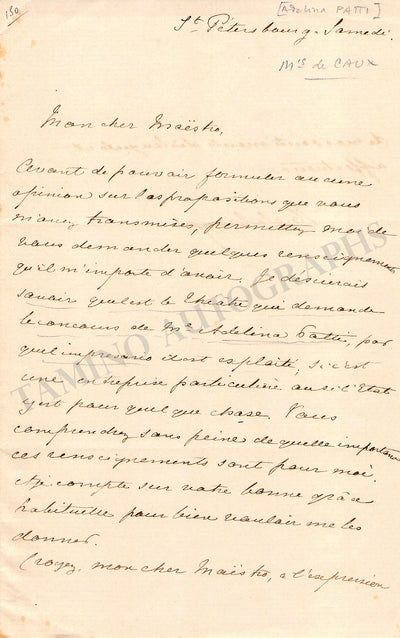 150
[Adelina PATTI]
St Pétersbourg - Samedi.
Mis de CAUX
Mon cher Maëstro,
Avant de pouvoir formuler aucune
opinion sur les propositions que vous
m'avez transmises, permettez moi de
vous demander quelques renseignements
qu'il m'importe d'avoir. Je désirerais
savoir quel est le théâtre qui demande
le concours de Me Adelina Patti, par
quel impresario il est exploité, si c'est
une entreprise particulière ou si l'Etat
y est pour quelque chose. Vous
comprendrez sans peine de quelle importance
ces renseignements sont pour moi.
Je compte sur votre bonne grâce
habituelle pour bien vouloir me les
donner.
Croyez, mon cher Maëstro, à l'expression
TAMINO AUTOGRAPHS